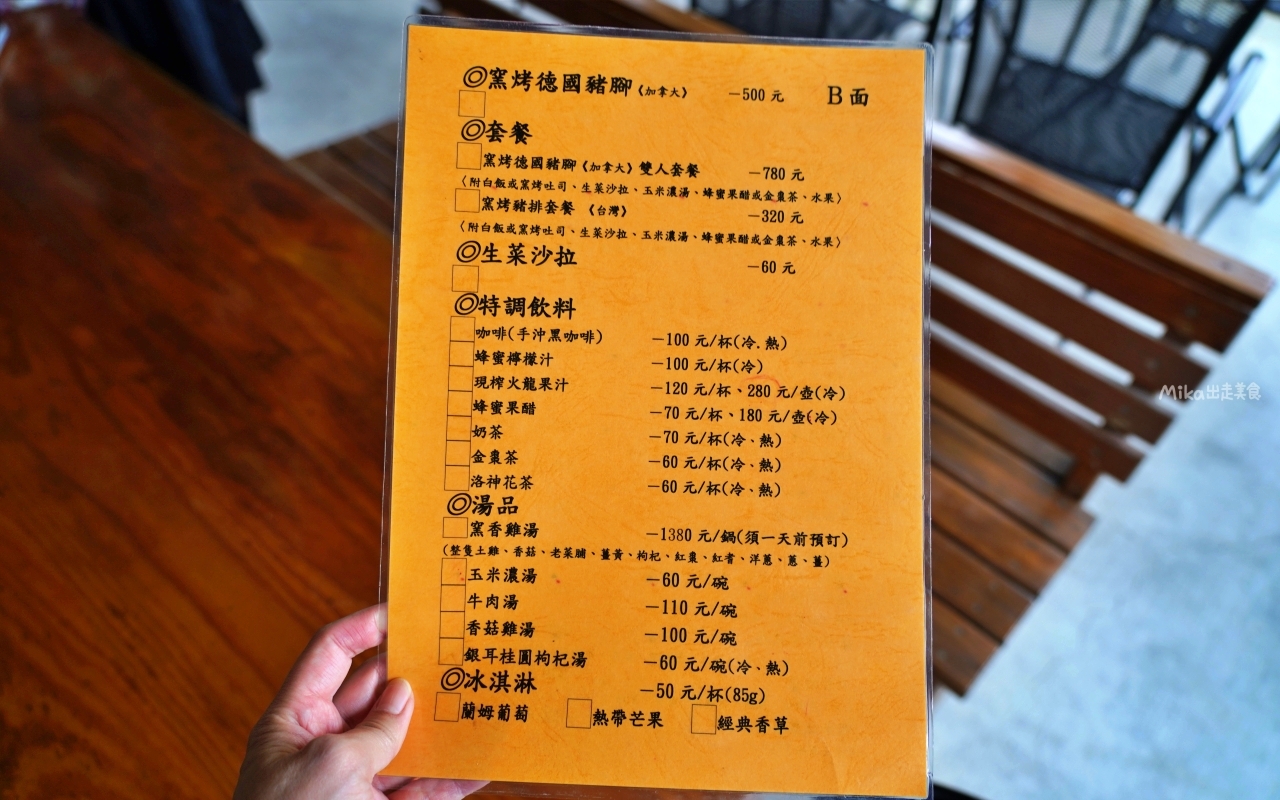 ◎窯烤德國豬腳《加拿大》 －500 元 B 面
◎套餐
窯烤德國豬腳《加拿大》雙人套餐 －780 元
〈附白飯或窯烤吐司、生菜沙拉、玉米濃湯、蜂蜜果醋或金棗茶、水果〉
窯烤豬排套餐 《台灣》 －320 元
〈附白飯或窯烤吐司、生菜沙拉、玉米濃湯、蜂蜜果醋或金棗茶、水果〉
◎生菜沙拉 －60 元
◎特調飲料
咖啡(手沖黑咖啡) －100 元/杯(冷.熱)
蜂蜜檸檬汁 －100 元/杯(冷)
現榨火龍果汁 －120 元/杯、280 元/壺(冷)
蜂蜜果醋 －70 元/杯、180 元/壺(冷)
奶茶 －70 元/杯(冷、熱)
金棗茶 －60 元/杯(冷、熱)
洛神花茶 －60 元/杯(冷、熱)
◎湯品
窯香雞湯 －1380 元/鍋(須一天前預訂)
(整隻土雞、香菇、老菜脯、薑黃、枸杞、紅棗、紅耆、洋蔥、蔥、薑)
玉米濃湯 －60 元/碗
牛肉湯 －110 元/碗
香菇雞湯 －100 元/碗
銀耳桂圓枸杞湯 －60 元/碗(冷、熱)
◎冰淇淋 －50 元/杯(85g)
蘭姆葡萄 熱帶芒果 經典香草
Mika出走美食